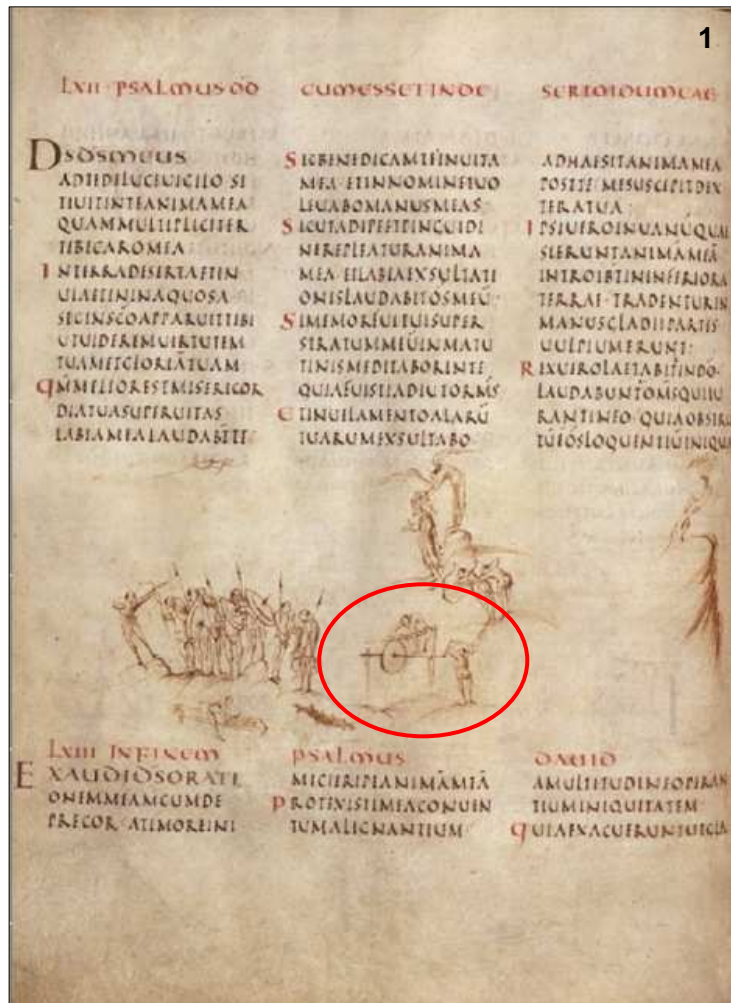 1
LXII PSALMUS DD CUMESSETINDE SERTOIDUMEAE
DSDSMEUS
ADTEDELUCEUIGILO SI
TIUITINTEANIMAMEA
QUAMMULTIPLICITER
TIBICAROMEA
INTERRADESERTAETIN
UIAETININAQUOSA
SICINSCOAPPARUITIBI
UTUIDEREMUIRTUTEM
TUAMETGLORIATUAM
QMMELIORESTMISERICOR
DIATUASUPERUITAS
LABIAMEALAUDABTE
SICBENEDICAMTEINUITA
MEA ETINNOMINETUO
LEUABOMANUSMEAS
SICUTADIPEETPINGUIDI
NEREPLEATURANIMA
MEA ETLABIAEXSULTATI
ONISLAUDABITOSMEU
SIMEMORFUITUISUPER
STRATUMMEUINMATU
TINISMEDITABORINTE
QUIAFUISTIADIUTORMS
ETINUELAMENTOALARU
TUARUMEXSULTABO
ADHAESITANIMAMEA
POSTTE MESUSCEPITDEX
TERATUA
IPSIUEROINUANUQUAE
SIERUNTANIMAMEA
INTROIBTININFERIORA
TERRAE TRADENTURIN
MANUSGLADIIPARTES
UULPIUMERUNT
REXUEROLAETABITINDO
LAUDABUNTOMSQUIIU
RANTINEO QUIAOBSTRU
TUEOSLOQUENTIUINIQUA
LXIII INFINEM PSALMUS DAUID
EXAUDIDSORATI
ONEMMEAMCUMDE
PRECOR ATIMOREINI
MICIERIPEANIMAMEA
PROTEXISTIMEACONUEN
TUMALIGNANTIUM
AMULTITUDINEOPERAN
TIUMINIQUITATEM
QUIAEXACUERUNTUTGLA